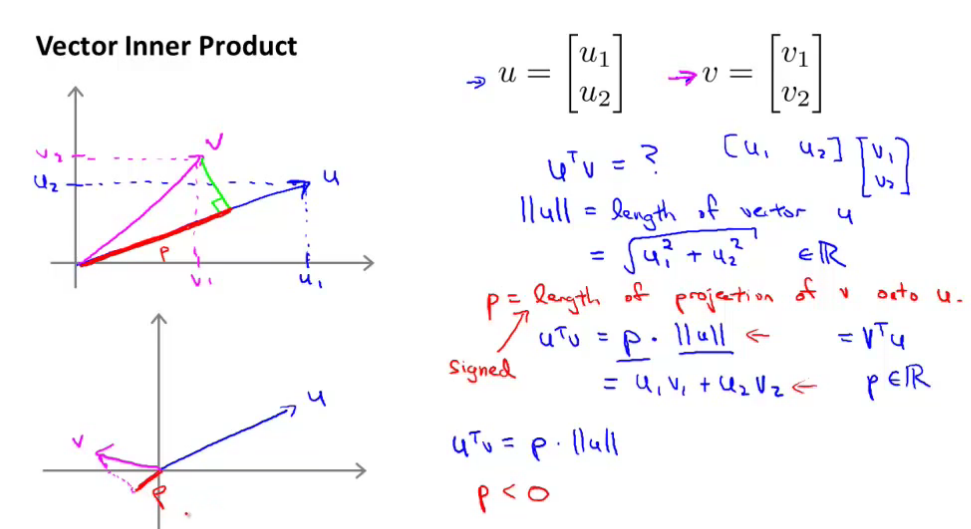 Vector Inner Product
u = [u1 u2] → v = [v1 v2]
uᵀv = ? [u₁ u₂] [v₁ v₂]
||u|| = length of vector u
= √(u₁² + u₂²) ∈ ℝ
p = length of projection of v onto u.
signed
uᵀv = p · ||u|| ← = vᵀu
= u₁v₁ + u₂v₂ ← p ∈ ℝ
uᵀv = p · ||u||
p < 0
v
v₂
u₂
u
p
v₁
u₁
u
v
p